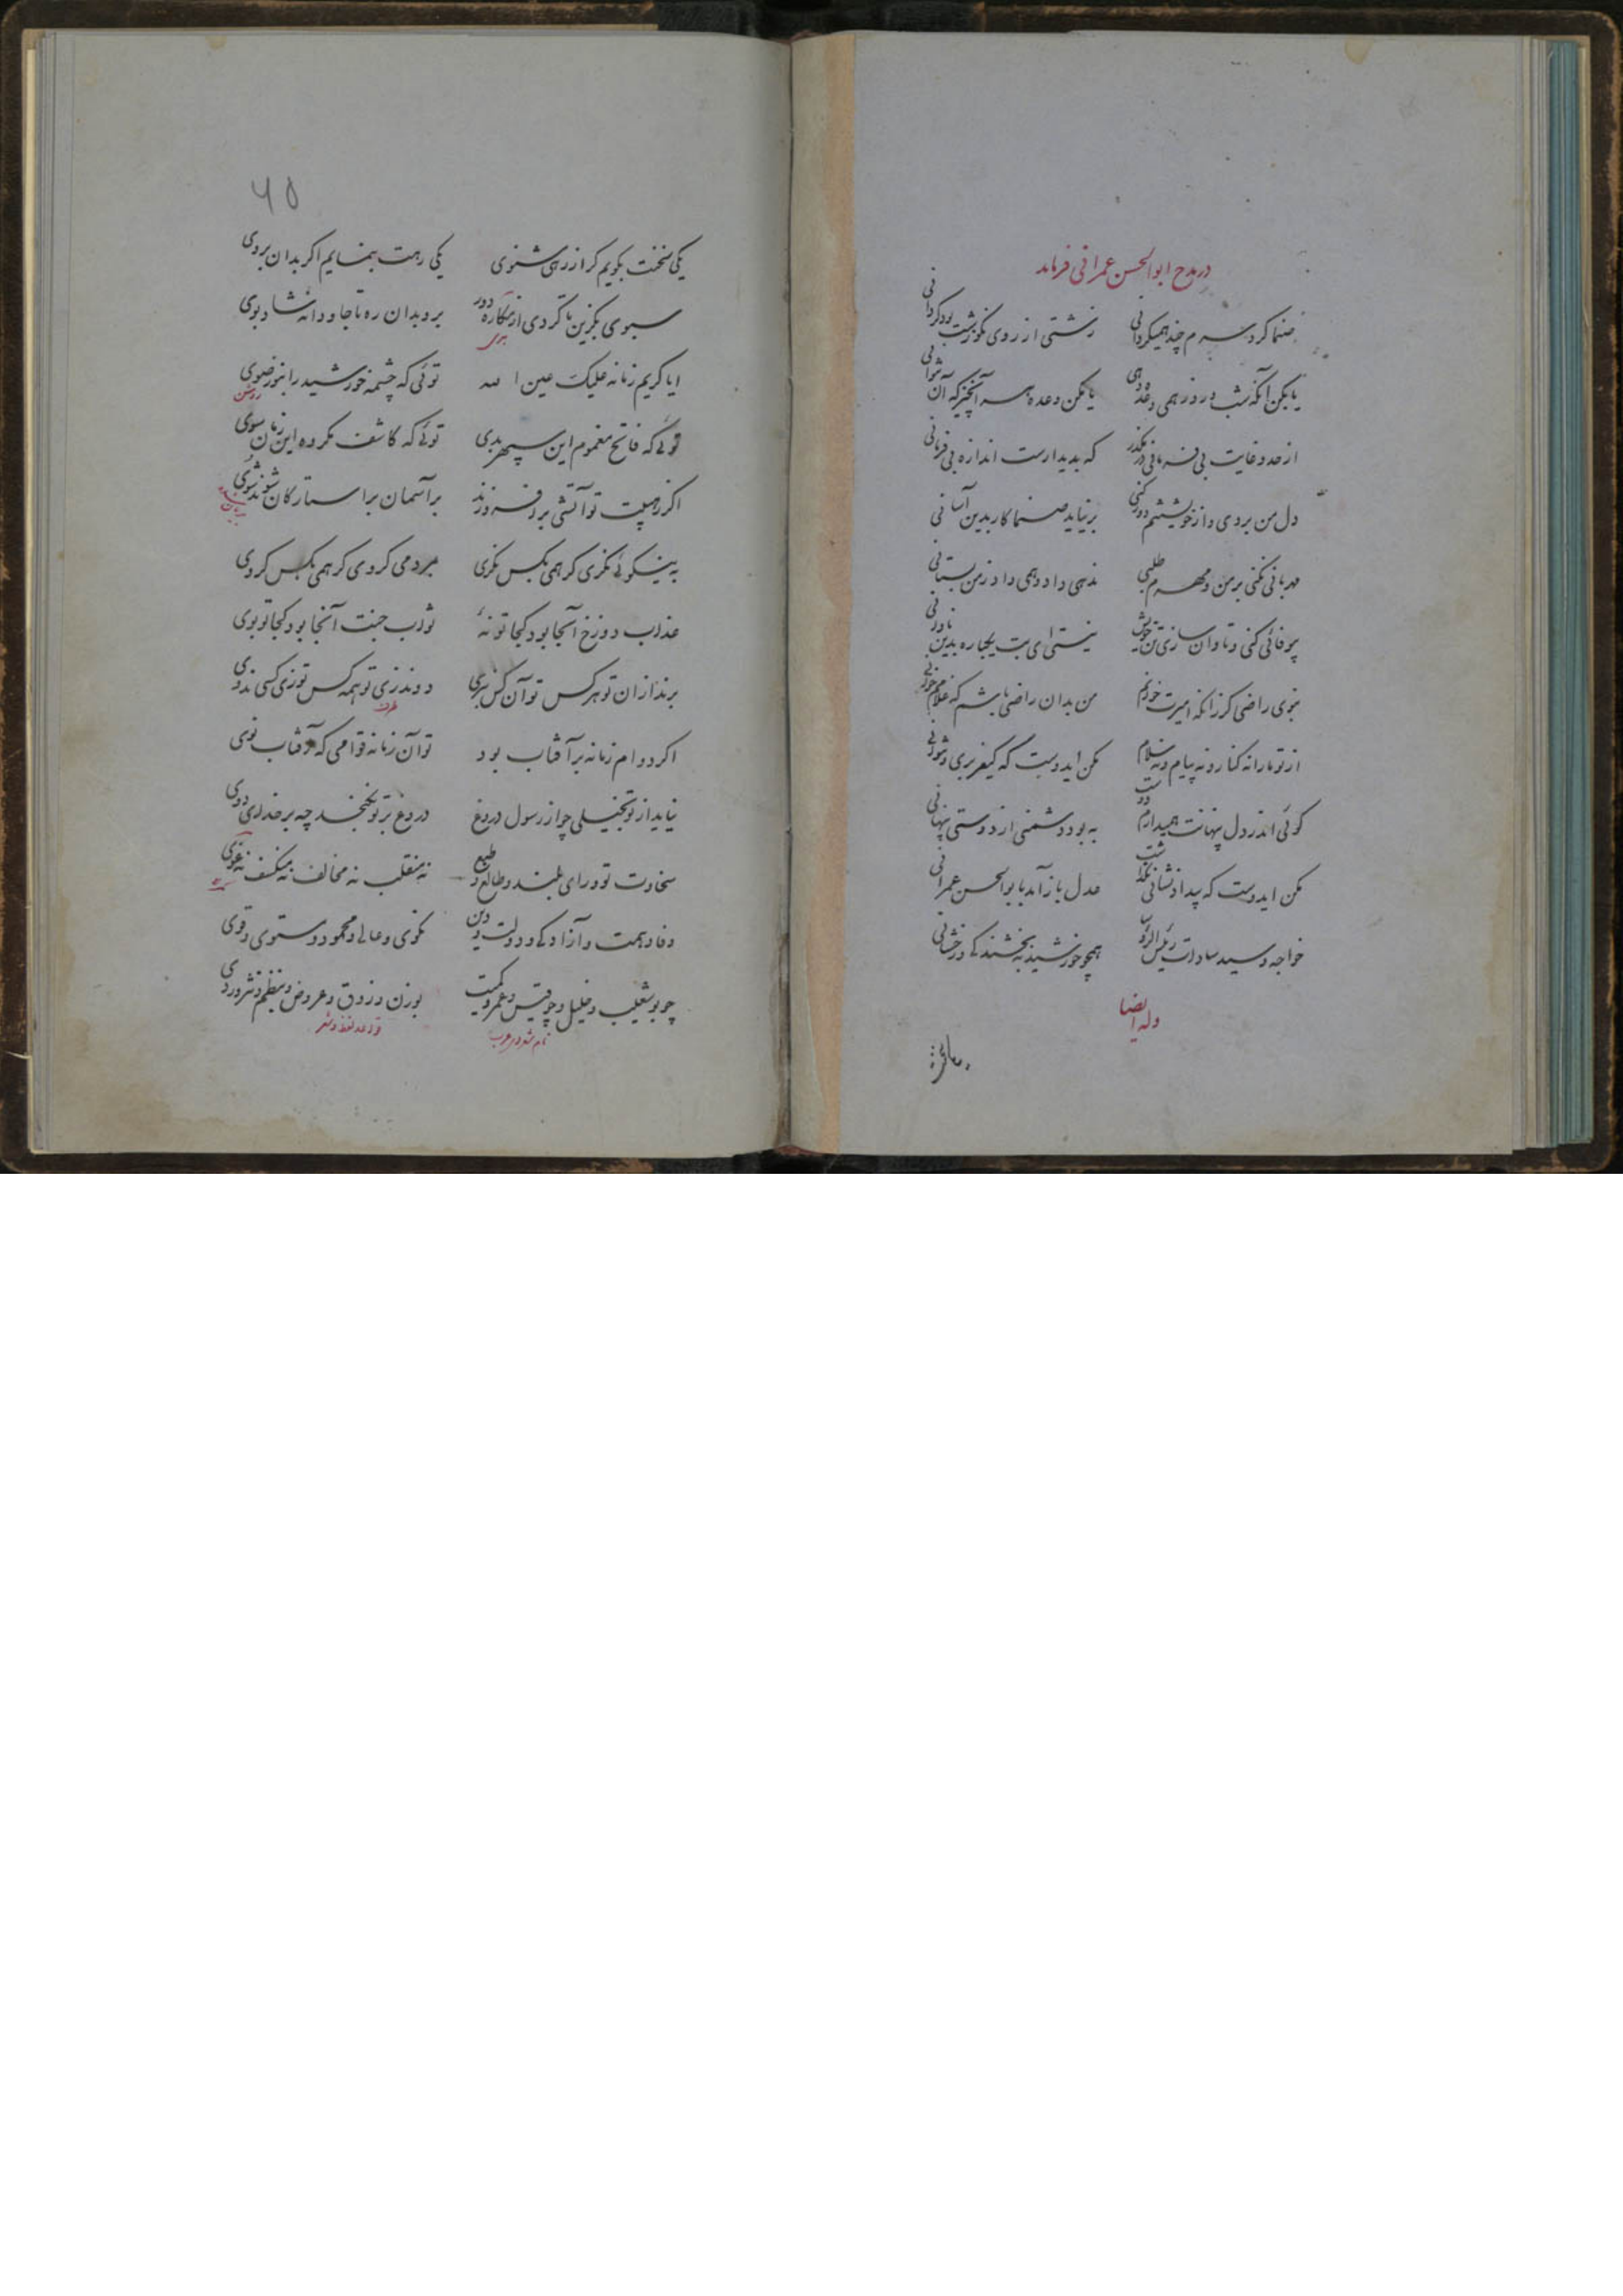 در مدح ابوالحسن عمرانی فرماید
صنما گرد سرم چند همیگردانی زشتی از روی نکو زشت بود گردانی
یا بکن آنکه شب و روز همی وعده دهی یا مکن وعده هر آنچیز که آن نتوانی
از حد و غایت بی فرمانی در مگذر که پدیدارست اندازه بی فرمانی
دل من بردی و از خویشتنم دور کنی برنیاید صنما کار بدین آسانی
مهربانی نکنی بر من و مهرم طلبی ندهی داد و همی داد ز من بستانی
بیوفائی کنی و نادان سازی تن خویش نیستی ای بت یکباره بدین نادانی
نبوی راضی گر زانکه امیرت خوانم من بدان راضی باشم که غلامم خوانی
از تو ما را نه کنار و نه پیام و نه سلام مکن ایدوست که کیفر بری و درمانی
گوئی اندر دل پنهانت همیدارم دوست به بود دشمنی از دوستی پنهانی
مکن ایدوست که بیداد نشانی نگذاشت عدل باز آمد با بوالحسن عمرانی
خواجه و سید سادات رئیس الرؤسا همچو خورشید به بخشندگی و رخشانی
وله ایضا
۶۵
یکی سخنت بگویم گر از رهی شنوی یکی رهت بنمایم اگر بدان بروی
سبوی بگزین تا گردی از مکاره دور برو بدان ره تا جاودانه شاد بوی
بری
ایا کریم زمانه علیک عین الله توئی که چشمه خورشید را بنور ضوی
روشن
توئی که فاتح مغموم این سپهر بدی توئی که کاشف مکروه این زمان سوی
اگر ز هیبت تو آتشی برافروزند بر آسمان بر استارگان شوند شوی
به نیکوئی نگری گر همی بکس نگری بمردمی گروی گر همی بکس گروی
عذاب دوزخ آنجا بود کجا تو نه ثواب جنت آنجا بود کجا تو بوی
برند از آن تو هر کس تو آن کس نبری دوند زی تو همه کس تو زی کسی ندوی
طرف
اگر دوام زمانه بر آفتاب بود تو آن زمانه قوامی که آفتاب نوی
نیاید از تو بخیلی چو از رسول دروغ دروغ بر تو نگنجد چه بر خدای دوی
سخاوت تو و رای بلند و طالع و طبع نه منقلب نه مخالف نه منکسف نه غوی
وفا و همت و آزادگی و دولت و دین نکوی و عالی و محمود و مستوی و قوی
چو بو شعیب و خلیل و چو قیس و عمرو کمیت بوزن و ذوق و عروض و بنظم و نثر و روی
نام شعرای عرب